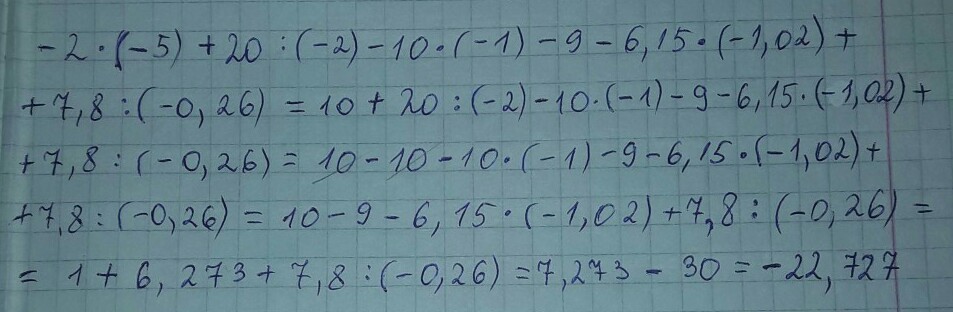 -2·(-5)+20:(-2)-10·(-1)-9-6,15·(-1,02)+
+7,8:(-0,26)=10+20:(-2)-10·(-1)-9-6,15·(-1,02)+
+7,8:(-0,26)=10-10-10·(-1)-9-6,15·(-1,02)+
+7,8:(-0,26)=10-9-6,15·(-1,02)+7,8:(-0,26)=
=1+6,273+7,8:(-0,26)=7,273-30=-22,727